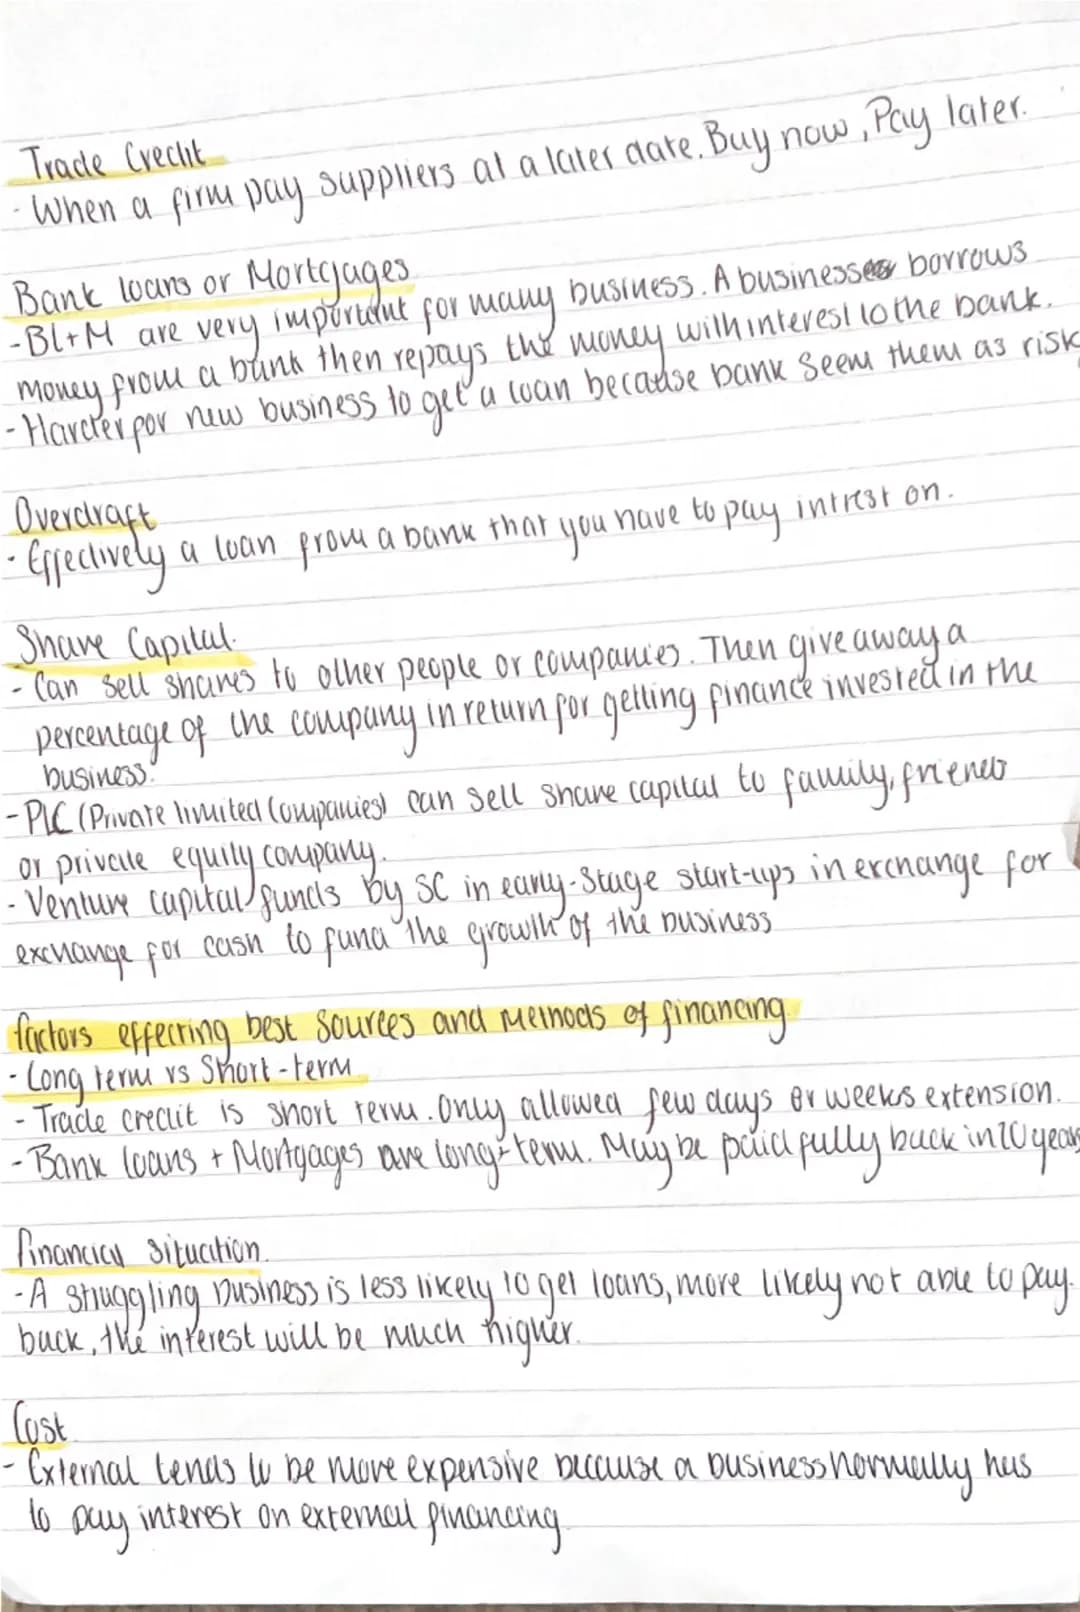 Trade Credit
- When a firm pay suppliers at a later date. Buy now, Pay later.
Bank loans or Mortgages
- BL+M are very important for many business. A business borrows
money from a bank then repays the money with interest to the bank.
- Harder for new business to get a loan because bank seem them as risk
Overdraft
- Effectively a loan from a bank that you have to pay intrest on.
Share Capital.
- Can sell shares to other people or companies. Then give away a
percentage of the company in return for getting finance invested in the
business.
- PLC (Private limited Companies) can sell share capital to family, friends
or private equity company.
- Venture capital funds by SC in early-stage start-ups in exchange for
exchange for cash to fund the growth of the business
factors effecting best sources and methods of financing
- Long term vs Short-term
- Trade credit is short term. Only allowed few days or weeks extension.
- Bank loans + Mortgages are long-term. May be paid fully back in 20 years
financial situation
- A struggling business is less likely to get loans, more likely not able to pay
back, the interest will be much higher.
Cost
- External tends to be more expensive because a business normally has
to pay interest on external financing